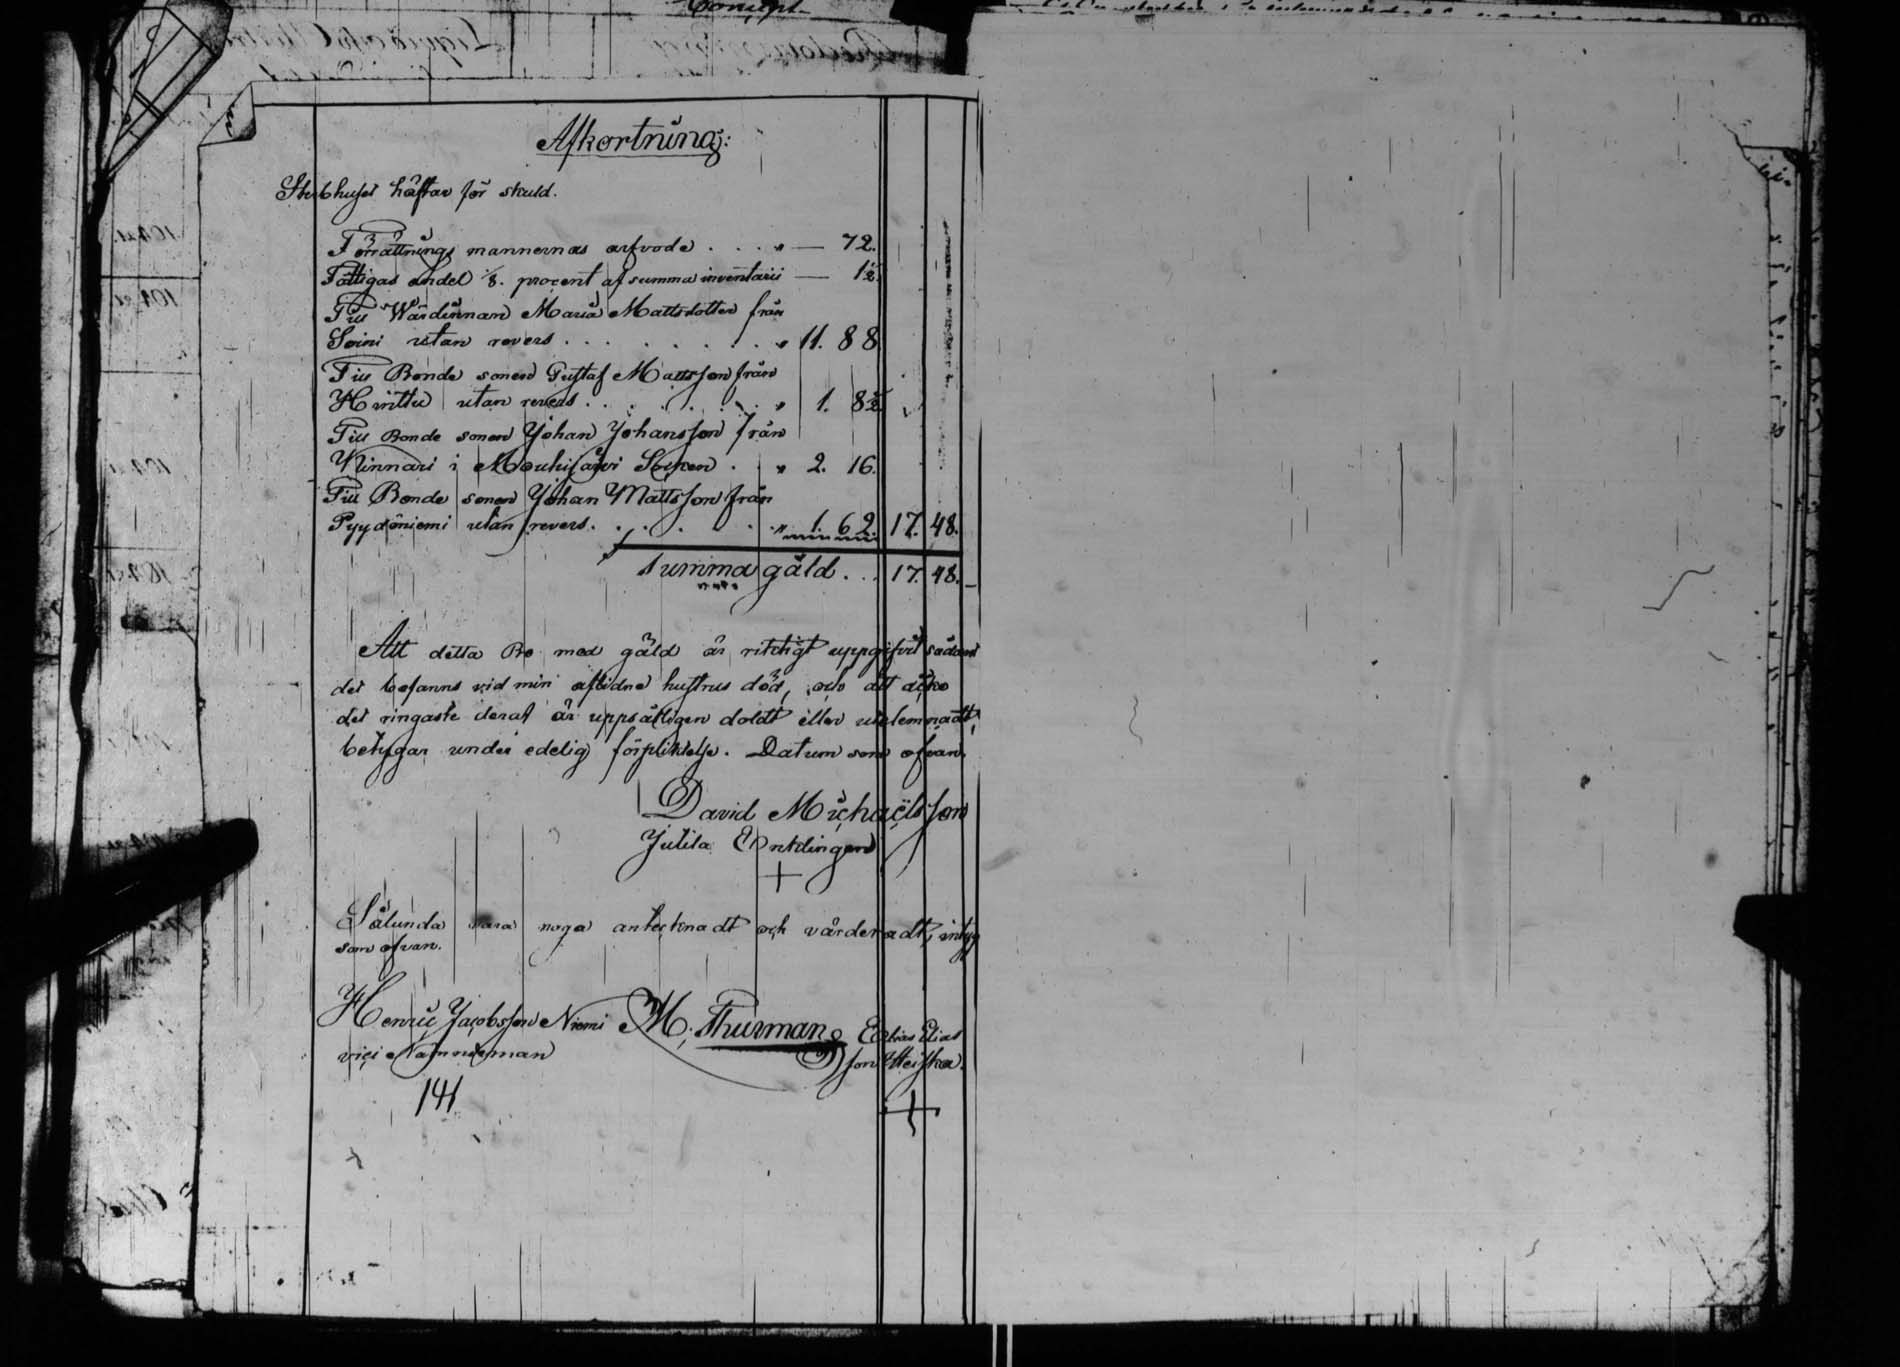 Concept
Afkortning:
Sterbhuset häftar för skuld.
Förrättnings mannernas arfvode . . . " — 72.
Fattigas andel 1/8. procent af summa inventarii — 1½
Till Wärdinnan Maria Mattsdotter från
Soini utan revers . . . . . . . . . " 11. 88
Till Bonde sonen Gustaf Mattsson från
Hvittu utan revers . . . . . . . " 1. 8½
Till Bonde sonen Johan Johansson från
Kinnari i Mouhijärvi Socken . . " 2. 16.
Till Bonde sonen Johan Mattsson från
Pyydöniemi utan revers. . . . . . " 1. 62. 17. 48.
Summa gäld . . . 17. 48.
Att detta Bo med gäld är ricktigt uppgifvit sådant
det befanns vid min aflidne hustrus död, och att äcke
det ringaste deraf är uppsåtligen doldt eller utelemnadt,
betygar under edelig förpliktelse. Datum som ofvan.
David Michaëlsson
Jutila Enklingen
+
Sålunda vara noga antecknadt och värderadt, intyga
som ofvan.
Henric Jacobsson Niemi M. Thurman Elias Elias
vici Nämndeman son Heiska.
+